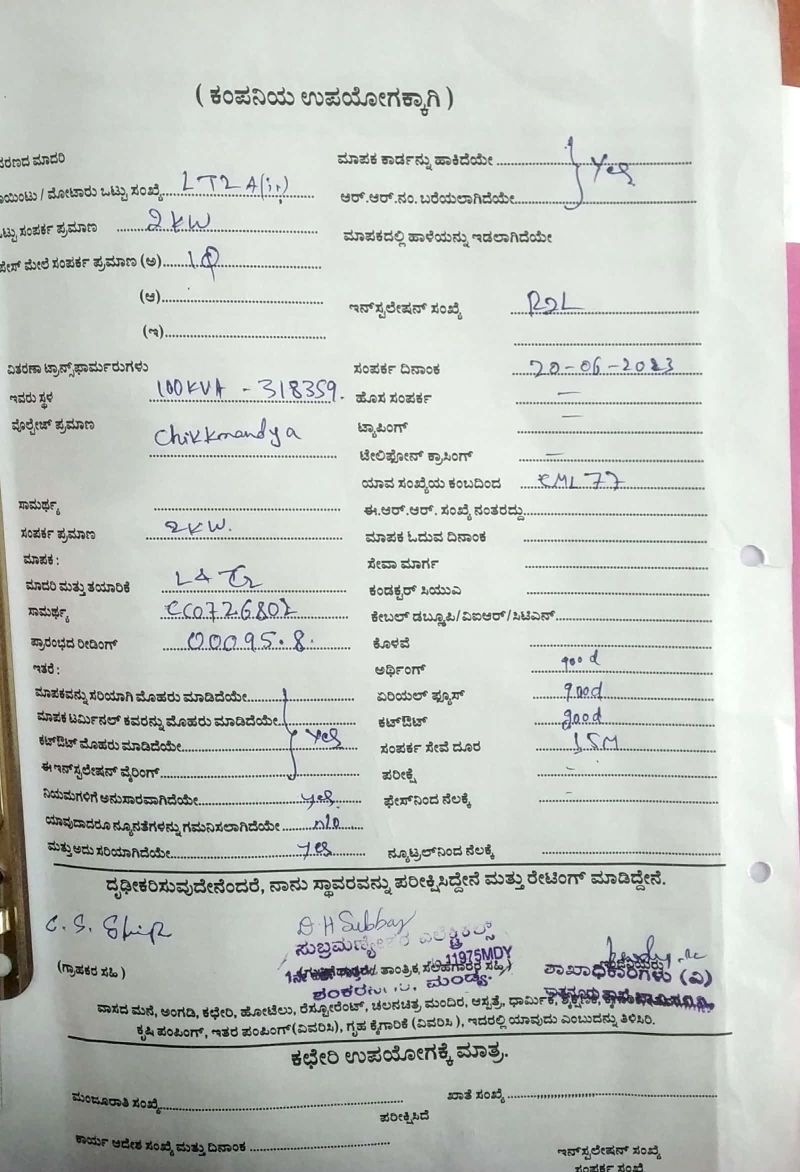 ( ಕಂಪನಿಯ ಉಪಯೋಗಕ್ಕಾಗಿ )
ಮಾದರಿ
ಒಟ್ಟು ಸಂಖ್ಯೆ LT2A(ii)
ಸಂಪರ್ಕ ಪ್ರಮಾಣ 2KW
ಮೇಲೆ ಸಂಪರ್ಕ ಪ್ರಮಾಣ (ಅ) 1Φ
(ಆ)
(ಇ)
ವಿತರಣಾ ಟ್ರಾನ್ಸ್‌ಫಾರ್ಮರುಗಳು
ಇವರು ಸ್ಥಳ 100KVA - 318359.
ವೊಲ್ಟೇಜ್ ಪ್ರಮಾಣ Chikkmandya
ಸಾಮರ್ಥ್ಯ
ಸಂಪರ್ಕ ಪ್ರಮಾಣ 2KW.
ಮಾಪಕ :
ಮಾದರಿ ಮತ್ತು ತಯಾರಿಕೆ
ಸಾಮರ್ಥ್ಯ
ಪ್ರಾರಂಭದ ರೀಡಿಂಗ್ 00095.8.
ಇತರೆ :
ಮಾಪಕವನ್ನು ಸರಿಯಾಗಿ ಮೊಹರು ಮಾಡಿದೆಯೇ
ಮಾಪಕ ಟರ್ಮಿನಲ್ ಕವರನ್ನು ಮೊಹರು ಮಾಡಿದೆಯೇ
ಕಟ್‌ಔಟ್ ಮೊಹರು ಮಾಡಿದೆಯೇ Yes
ಈ ಇನ್‌ಸ್ಪಲೇಷನ್ ವೈರಿಂಗ್
ನಿಯಮಗಳಿಗೆ ಅನುಸಾರವಾಗಿದೆಯೇ yes
ಯಾವುದಾದರೂ ನ್ಯೂನತೆಗಳನ್ನು ಗಮನಿಸಲಾಗಿದೆಯೇ no
ಮತ್ತು ಅದು ಸರಿಯಾಗಿದೆಯೇ yes
ಮಾಪಕ ಕಾರ್ಡನ್ನು ಹಾಕಿದೆಯೇ Yes
ಆರ್.ಆರ್.ನಂ. ಬರೆಯಲಾಗಿದೆಯೇ
ಮಾಪಕದಲ್ಲಿ ಹಾಳೆಯನ್ನು ಇಡಲಾಗಿದೆಯೇ
ಇನ್‌ಸ್ಪಲೇಷನ್ ಸಂಖ್ಯೆ
ಸಂಪರ್ಕ ದಿನಾಂಕ 20-06-2023
ಹೊಸ ಸಂಪರ್ಕ —
ಟ್ಯಾಪಿಂಗ್ —
ಟೆಲಿಫೋನ್ ಕ್ರಾಸಿಂಗ್ —
ಯಾವ ಸಂಖ್ಯೆಯ ಕಂಬದಿಂದ CML 77
ಈ.ಆರ್.ಆರ್. ಸಂಖ್ಯೆ ನಂತರದ್ದು
ಮಾಪಕ ಓದುವ ದಿನಾಂಕ
ಸೇವಾ ಮಾರ್ಗ
ಕಂಡಕ್ಟರ್ ಸಿಯುಎ
ಕೇಬಲ್ ಡಬ್ಲೂಪಿ/ವಿಐಆರ್/ಸಿಟಿಎನ್
ಕೊಳವೆ
ಅರ್ಥಿಂಗ್ good
ಏರಿಯಲ್ ಫ್ಯೂಸ್ good
ಕಟ್‌ಔಟ್ good
ಸಂಪರ್ಕ ಸೇವೆ ದೂರ 15M
ಪರೀಕ್ಷೆ —
ಫೇಸ್‌ನಿಂದ ನೆಲಕ್ಕೆ —
ನ್ಯೂಟ್ರಲ್‌ನಿಂದ ನೆಲಕ್ಕೆ
ದೃಢೀಕರಿಸುವುದೇನೆಂದರೆ, ನಾನು ಸ್ಥಾವರವನ್ನು ಪರೀಕ್ಷಿಸಿದ್ದೇನೆ ಮತ್ತು ರೇಟಿಂಗ್ ಮಾಡಿದ್ದೇನೆ.
D H Subbay
ಎಲೆಕ್ಟ್ರಿಕಲ್ಸ್
11975MDY
(ಗ್ರಾಹಕರ ಸಹಿ) ತಾಂತ್ರಿಕ ಸಲಹೆಗಾರರ ಸಹಿ) ಶಾಖಾಧಿಕಾರಿಗಳು (ವಿ)
ಮಂಡ್ಯ.
ವಾಸದ ಮನೆ, ಅಂಗಡಿ, ಕಛೇರಿ, ಹೋಟೆಲು, ರೆಸ್ಟೋರೆಂಟ್, ಚಲನಚಿತ್ರ ಮಂದಿರ, ಆಸ್ಪತ್ರೆ, ಧಾರ್ಮಿಕ,
ಕೃಷಿ ಪಂಪಿಂಗ್, ಇತರ ಪಂಪಿಂಗ್(ವಿವರಿಸಿ), ಗೃಹ ಕೈಗಾರಿಕೆ (ವಿವರಿಸಿ ), ಇದರಲ್ಲಿ ಯಾವುದು ಎಂಬುದನ್ನು ತಿಳಿಸಿರಿ.
ಕಛೇರಿ ಉಪಯೋಗಕ್ಕೆ ಮಾತ್ರ.
ಮಂಜೂರಾತಿ ಸಂಖ್ಯೆ ಖಾತೆ ಸಂಖ್ಯೆ
ಪರೀಕ್ಷಿಸಿದೆ
ಕಾರ್ಯ ಆದೇಶ ಸಂಖ್ಯೆ ಮತ್ತು ದಿನಾಂಕ
ಇನ್‌ಸ್ಪಲೇಷನ್ ಸಂಖ್ಯೆ
ಸಂಪರ್ಕ ಸಂಖ್ಯೆ